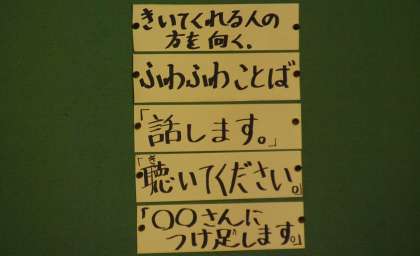 きいてくれる人の
方を向く.
ふわふわことば
「話します。」
「聴いてください。」
「〇〇さんに
つけ足します。」